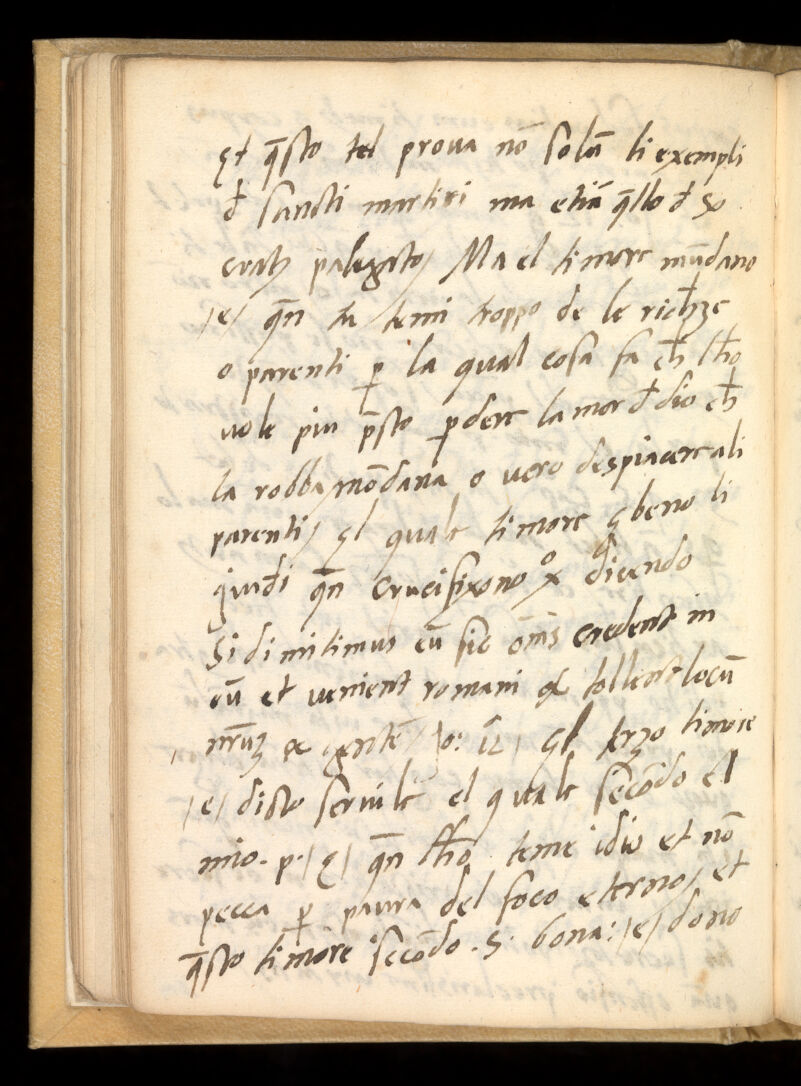 Et q̄sto tel proua nō solā li exempli
đ sancti martiri ma etiā q̄llo đ
palegato / Ma el timore mūdano
/e/ qn̄ tu temi troppo de le richze
o parenti p la qual cosa fa ch̄ lho
uole piu p̄sto pdere lamor đ dio ch̄
la robba mōdana o uero despiacere ali
parenti / El quale timore heno li
qn̄ crucifixono xº dicendo
Si dimitimus eū sic om̄s credent in
eū et uenient romani et tollent locū
nr̄uz et gentē / Io: 12 / El terzo timore
/e/ disto seruile el quale secōdo el
mio. p. /e/ qn̄ lhō teme idio et nō
pecca p paura del foco eterno / et
q̄sto timore secōdo .S. bona: /e/ dono